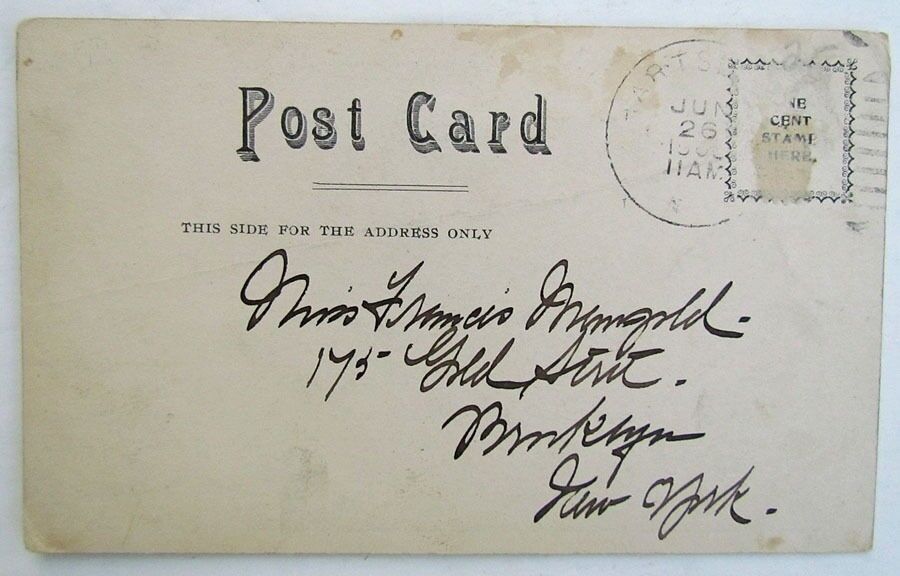 Post Card
THIS SIDE FOR THE ADDRESS ONLY
JUN
26
11AM
NE
CENT
STAMP
HERE.
Miss Francis Mangold.
175 Gold Street.
Brooklyn
New York.